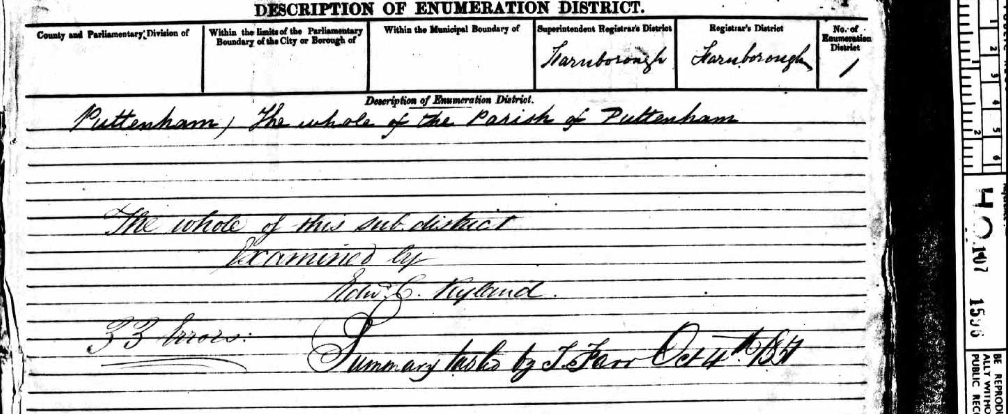 DESCRIPTION OF ENUMERATION DISTRICT.
County and Parliamentary Division of
Within the limits of the Parliamentary Boundary of the City or Borough of
Within the Municipal Boundary of
Superintendent Registrar's District
Farnborough
Registrar's District
Farnborough
No. of Enumeration District
1
Description of Enumeration District.
Puttenham, The whole of the Parish of Puttenham
The whole of this sub district
Examined by
Edw. C. Ryland.
33 Errors.
Summary by T. Farr Oct 4th
HO 107
1596
BE REPROD
ALLY WITHO
PUBLIC REC